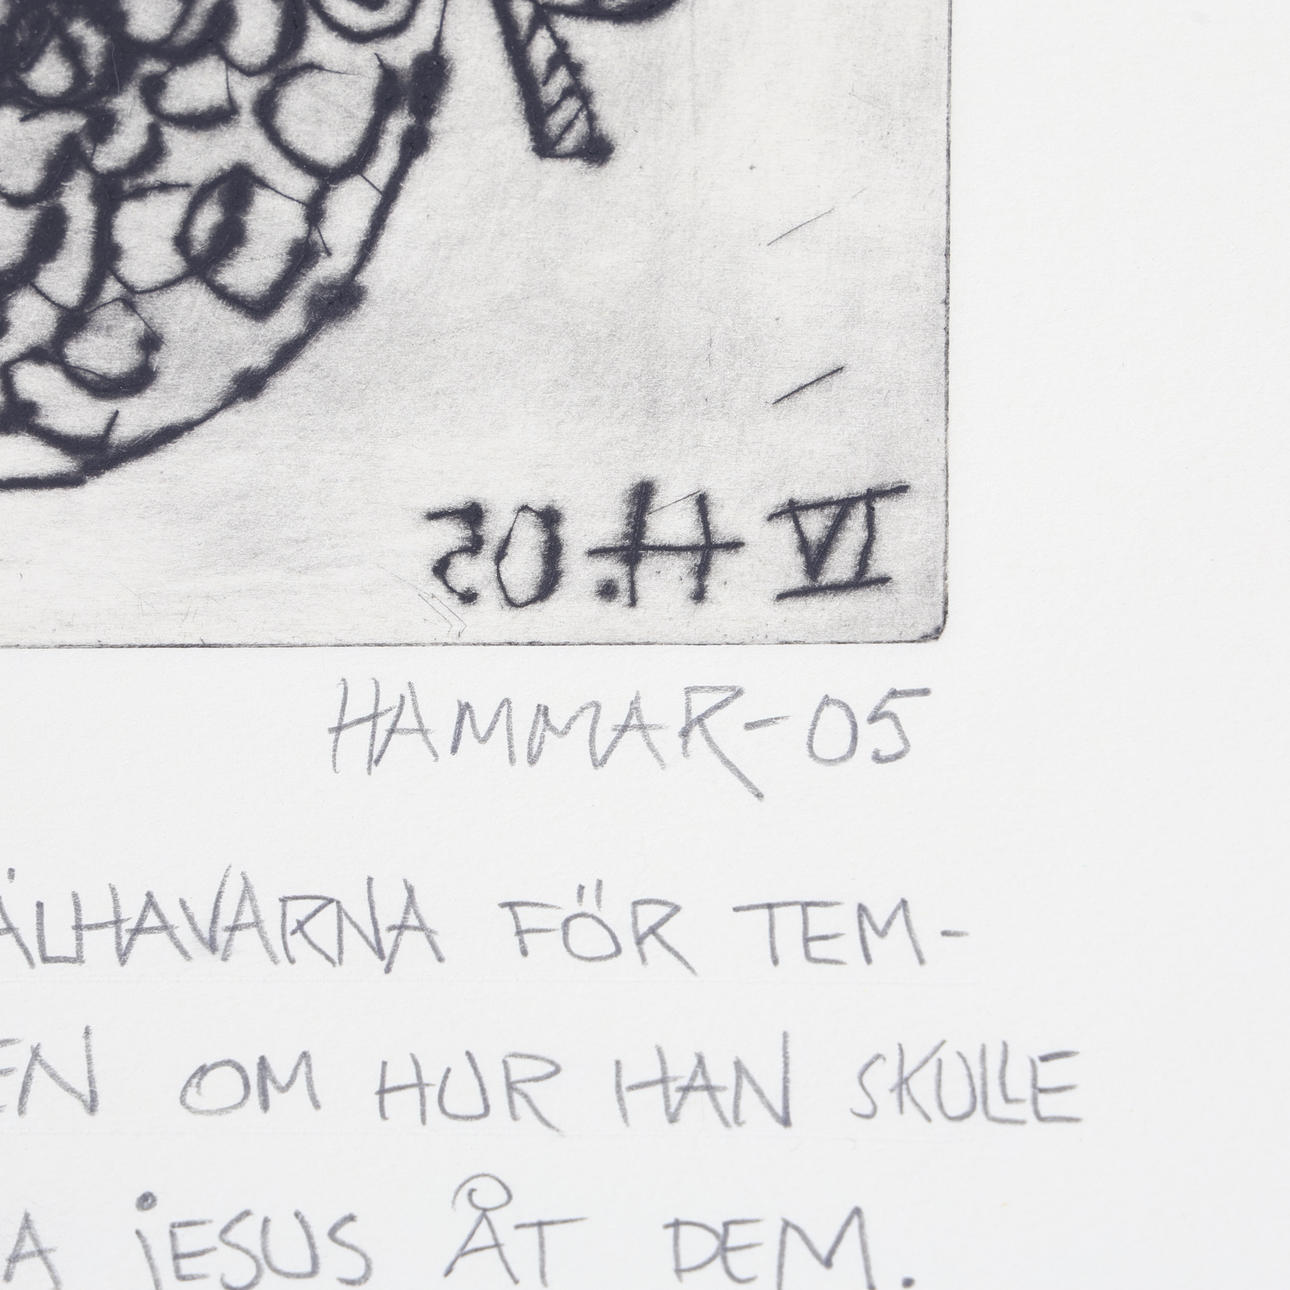 20.H VI
HAMMAR-05
ÄLHAVARNA FÖR TEM-
EN OM HUR HAN SKULLE
A JESUS ÅT DEM.